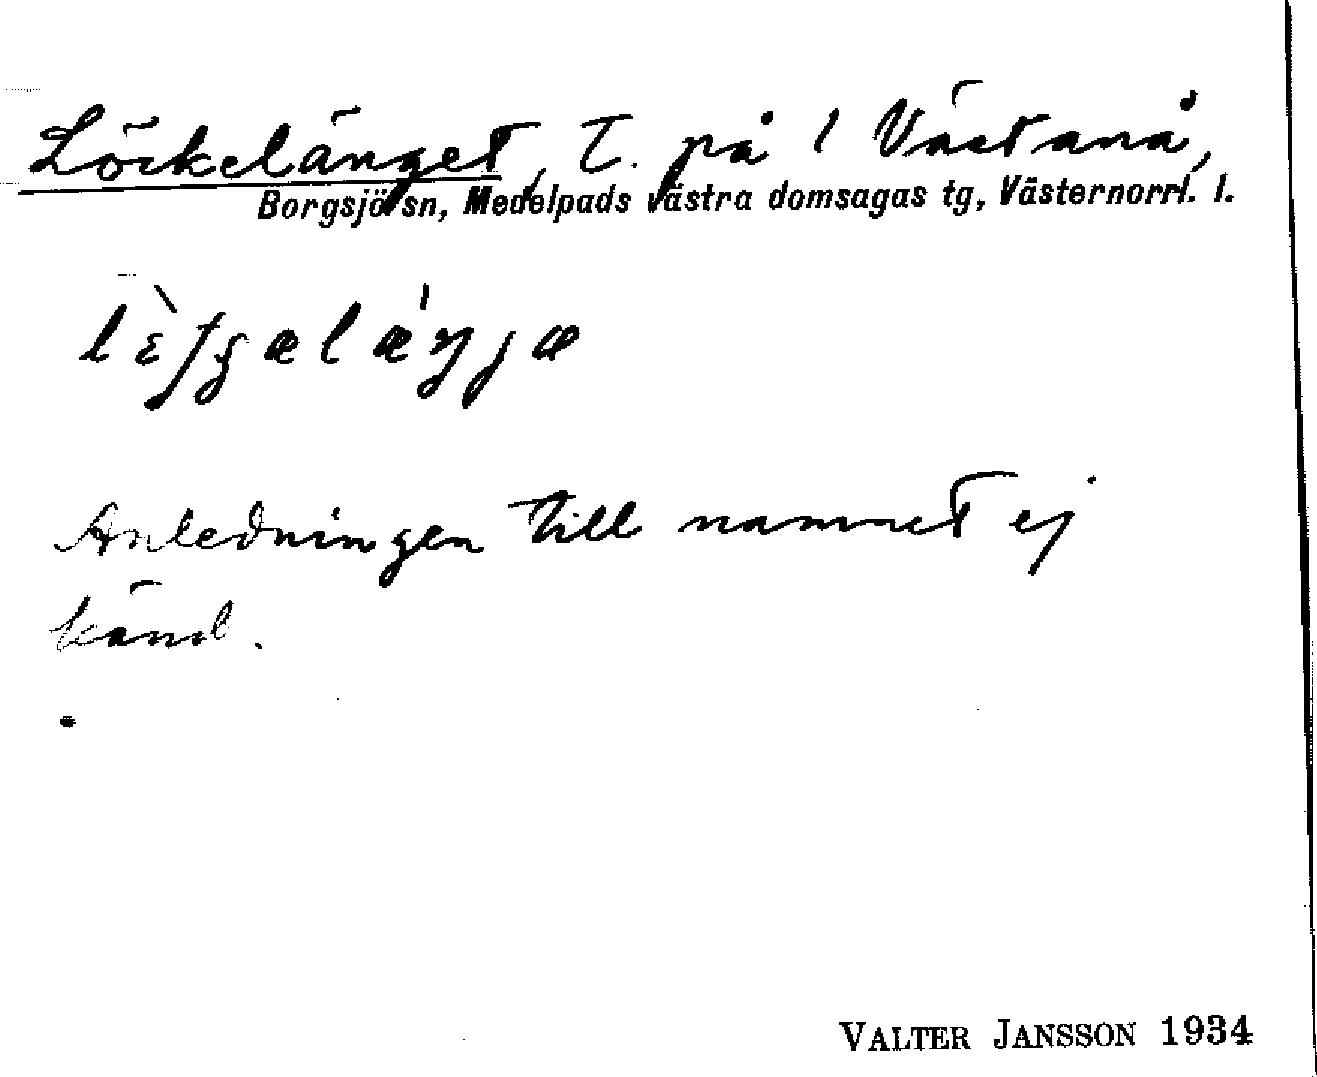 Löckelänget, T. på 1 Västanå,
Borgsjö sn, Medelpads västra domsagas tg, Västernorrl. l.
Anledningen till namnet ej
känd.
VALTER JANSSON 1934